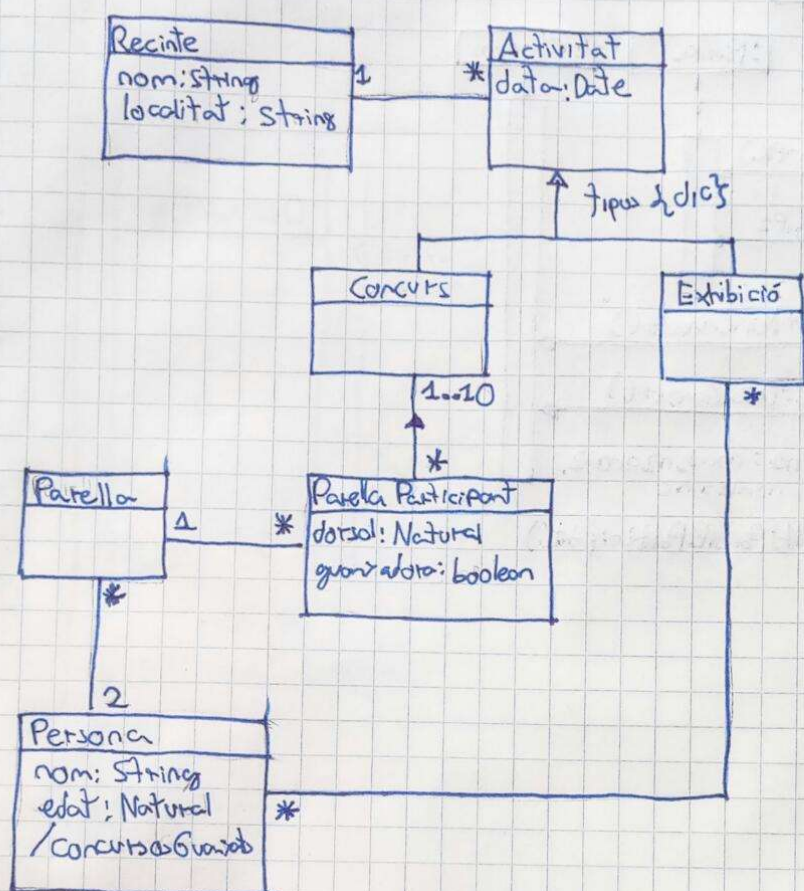 Recinte
nom: String
localitat: String
1
*
Activitat
data: Date
tipus {d,c}
Concurs
Exhibició
1..10
*
*
Parella
1
*
Parella Participant
dorsal: Natural
guanyadora: boolean
*
2
Persona
nom: String
edat: Natural
/concursosGuanyats
*